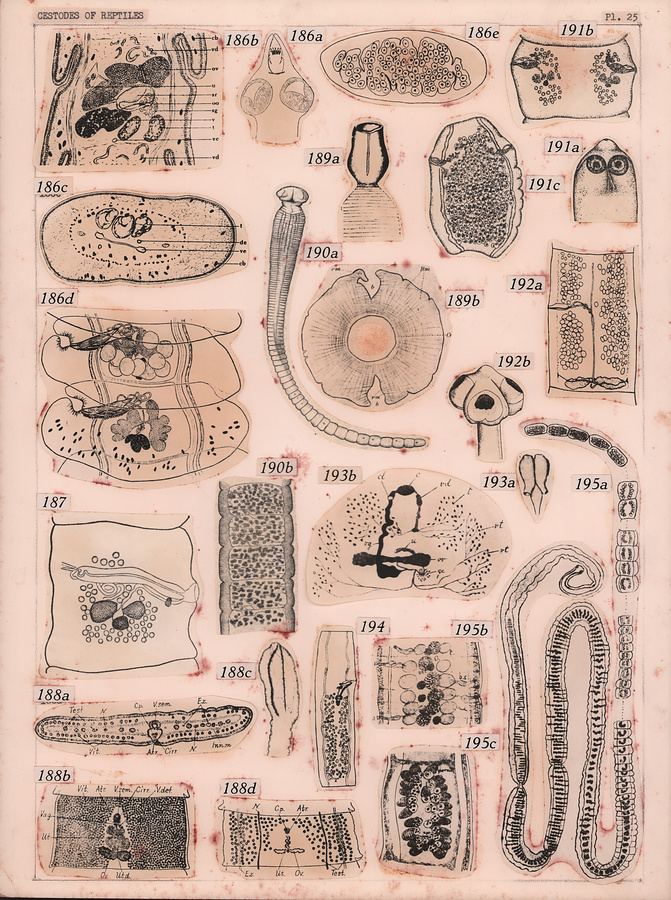 CESTODES OF REPTILES
Pl. 25
186b
186a
186e
191b
cb
vd
ov
u
sr
oo
sg
t
vc
vd
189a
191a
191c
186c
190a
189b
192a
186d
192b
190b
193b
193a
195a
cl
c
vd
t
vt
187
194
195b
188c
188a
Test.
N
Cp.
V.sem.
Ex.
Vit.
Atr.
Cirr.
N
In.n.m
195c
188b
188d
Vit. Atr. V.sem. Cirr. V.def.
Vag.
Ut.
Ov. Ut.d.
N Cp. Atr.
Ex. Ut. Ov. Test.